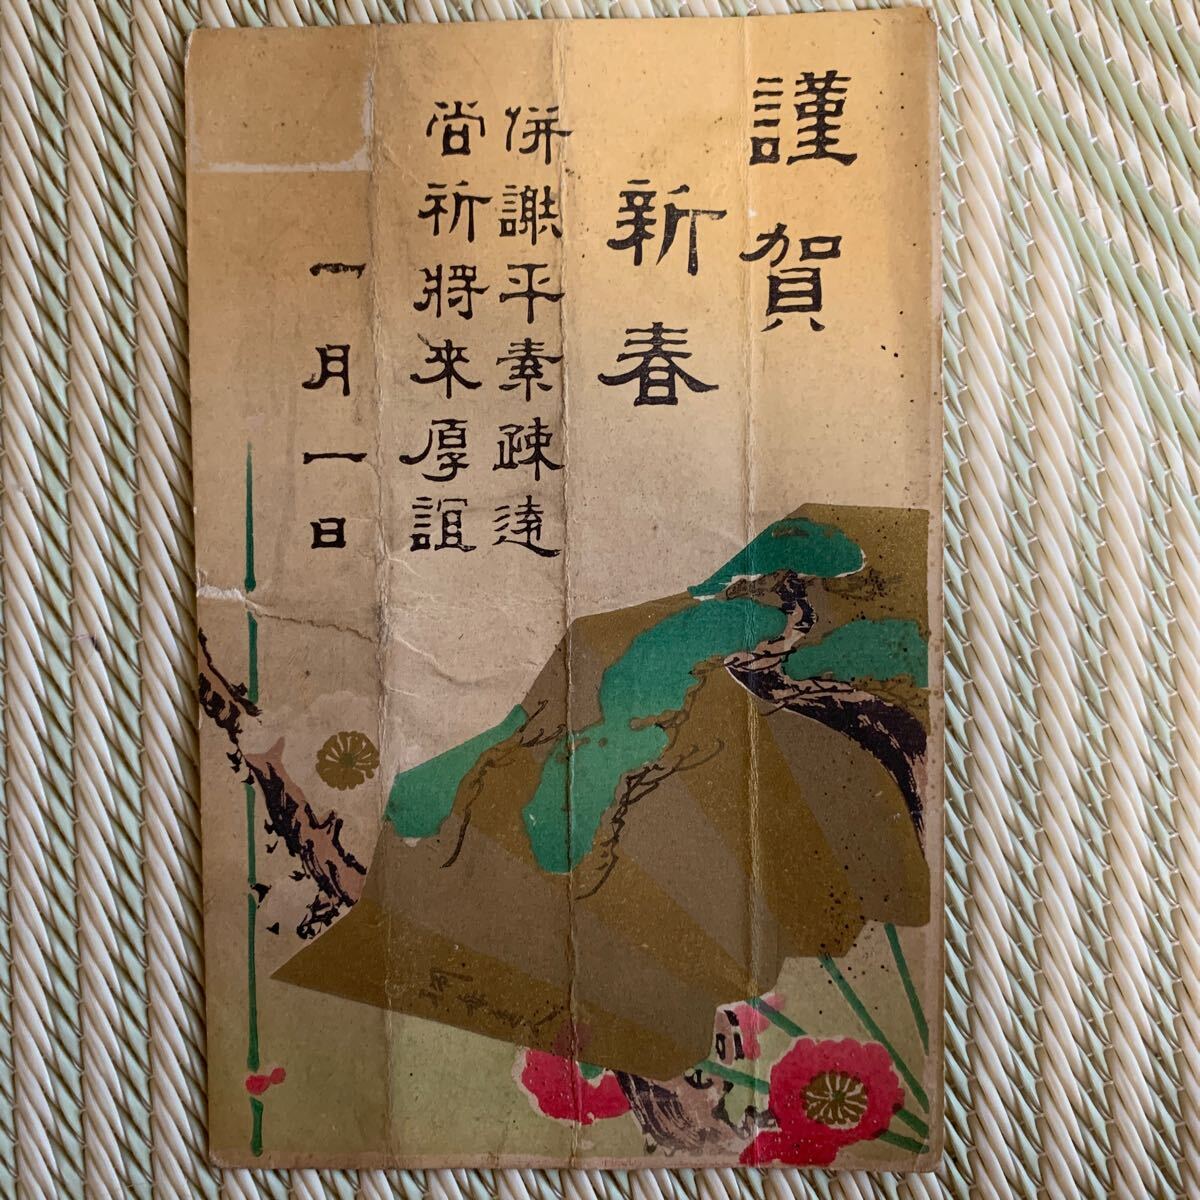 謹賀
新春
併謝平素疎遠
尚祈将来厚誼
一月一日